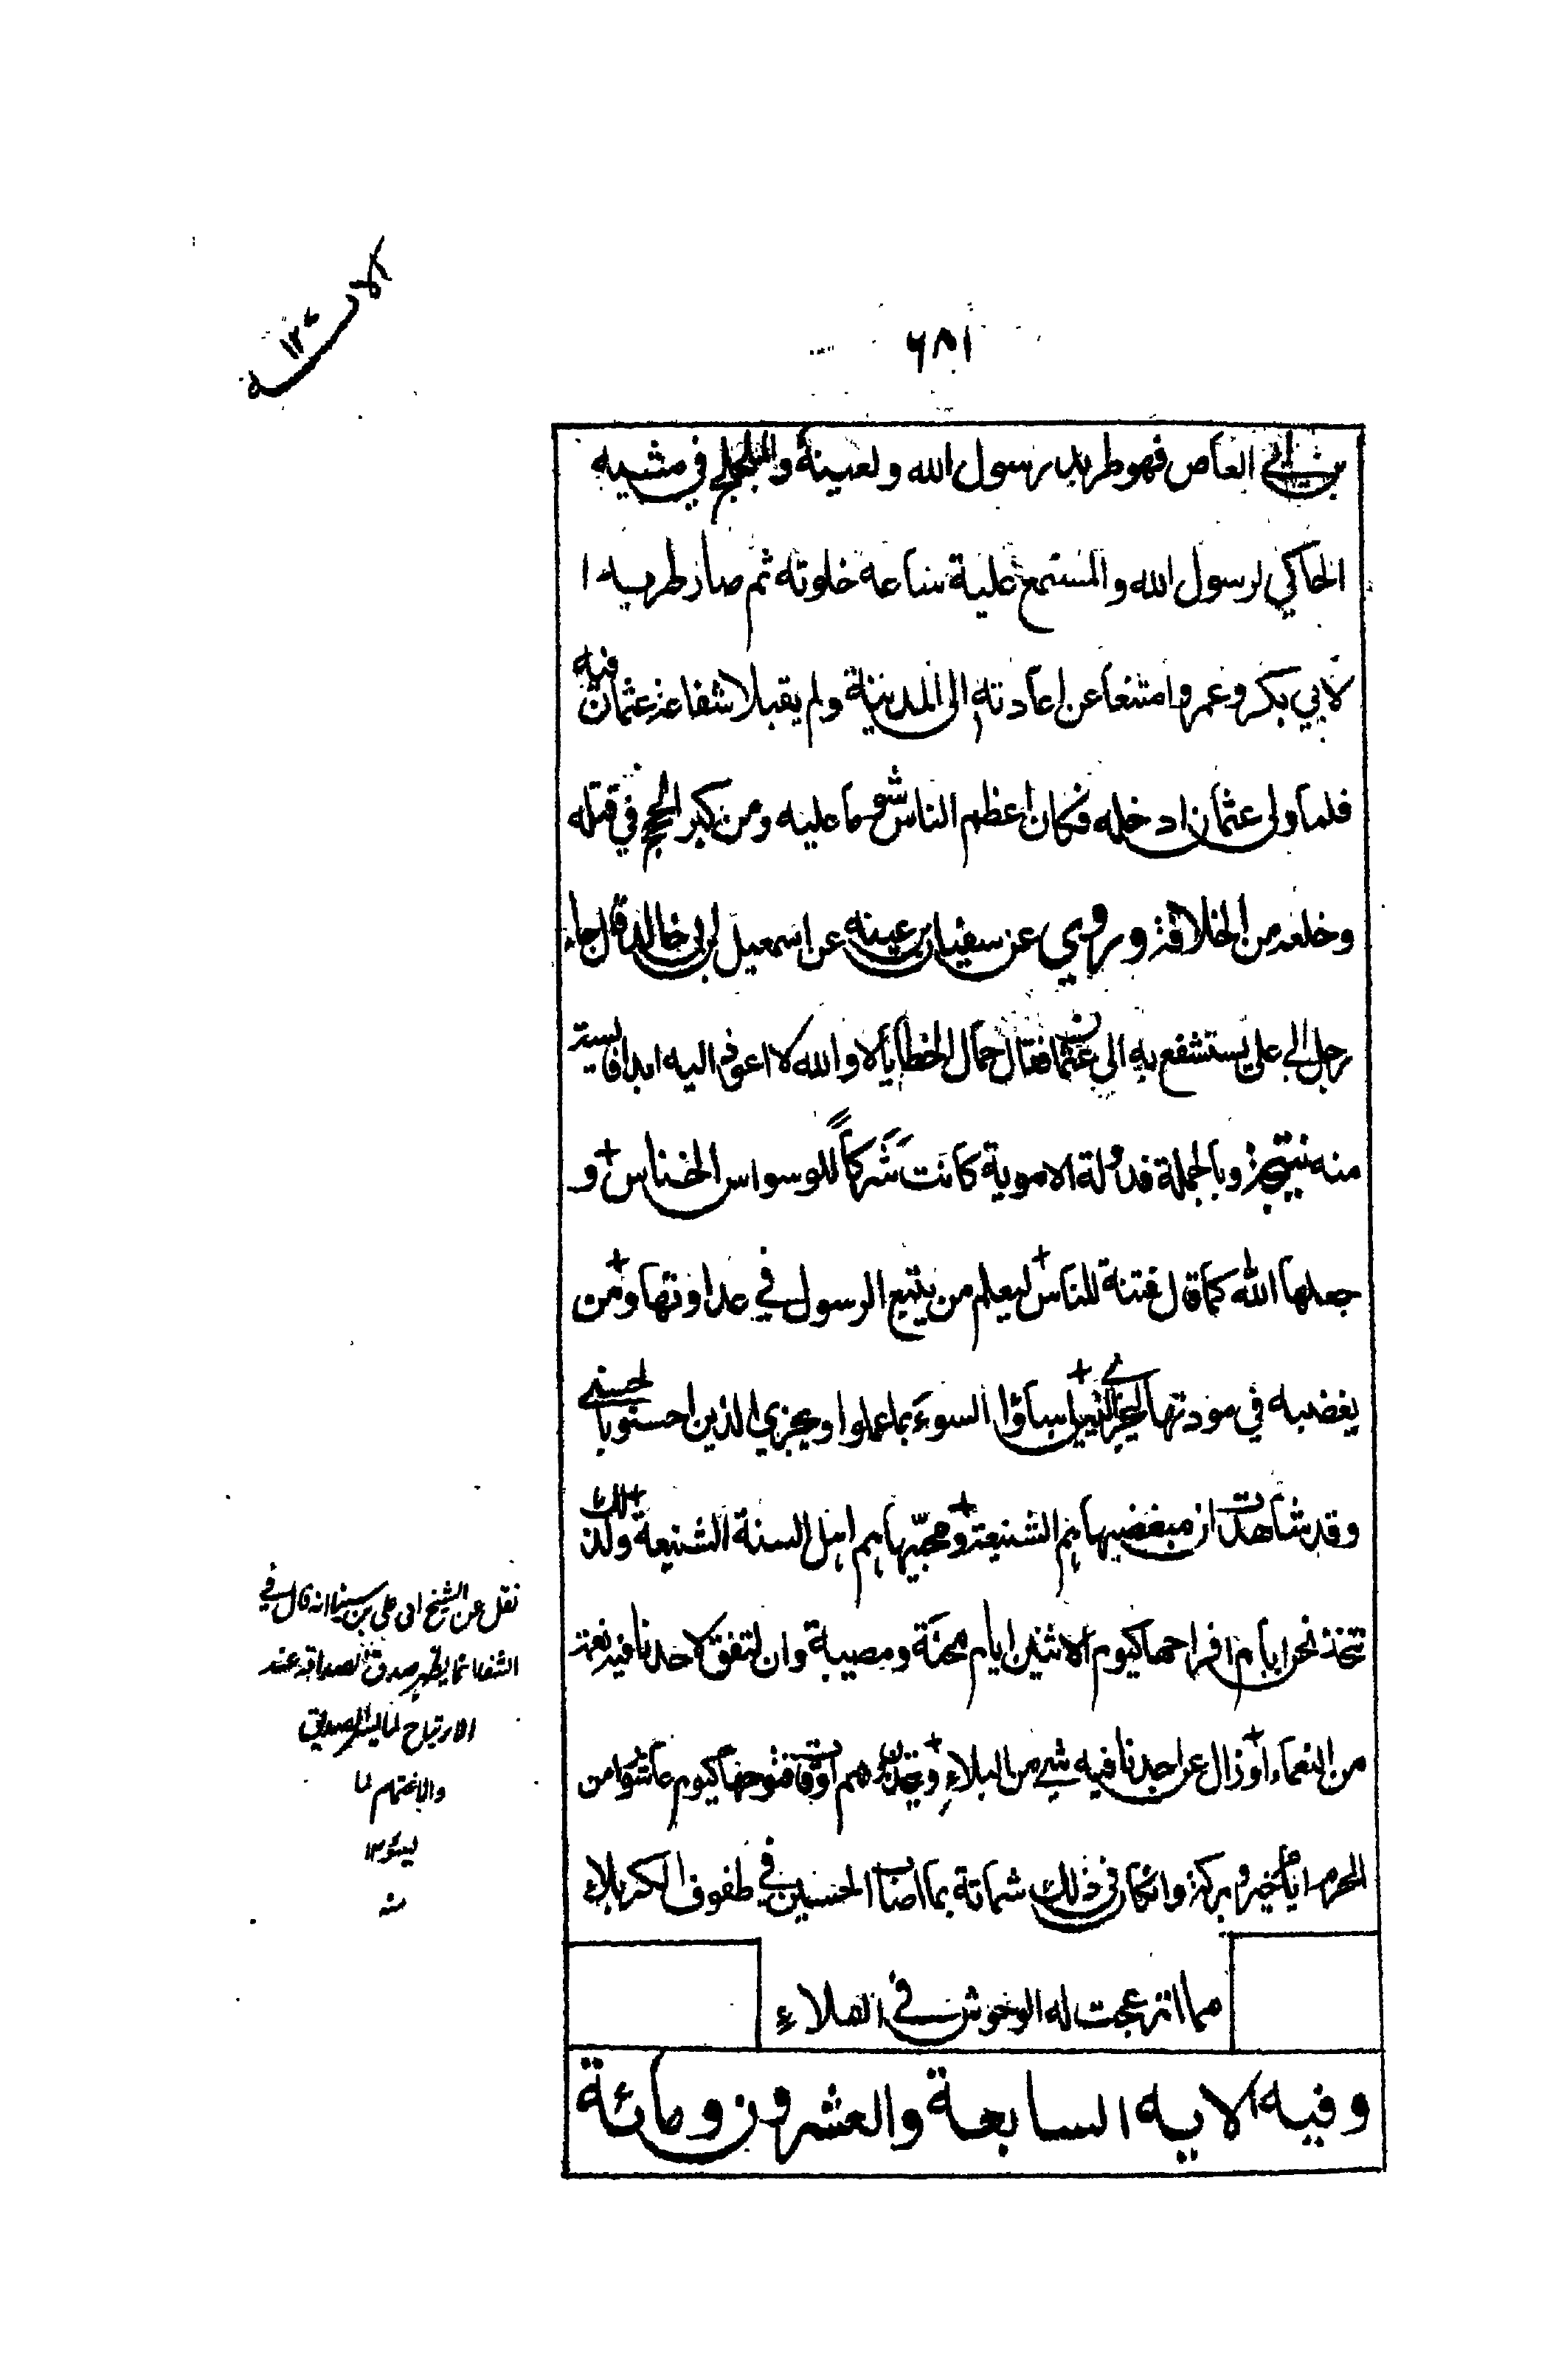 ١٨٦
بن ابي العاص فهو طريد رسول الله ولعينه والمتخلج في مشيه
الحاكي لرسول الله والمستمع عليه ساعه خلوته ثم صار طريدا
لابي بكر وعمر وامتنعا عن اعادته الى المدينة ولم يقبلا شفاعة عثمان فيه
فلما ولى عثمان ادخله فكان اعظم الناس شوما عليه ومن كبر الحجج في قتله
وخلعه من الخلافة وروي عن سفيان بن عينه عن اسمعيل بن ابي خالد قال جاء
رجل الى علي يستشفع به الى عثمان فقال حمال الخطايا لا والله لا اعود اليه ابدا فايسته
منه نتيجة وبالجملة فدولة الاموية كانت شركاً للوسواس الخناس و
جعلها الله كما قال فتنة للناس ليعلم من يتبع الرسول في عداوتها ومن
يغضبه في مودتها ليجزي الذين اساؤا السوء بما عملوا ويجزي الذين احسنوا بالحسنى
وقد شاهدت ان مبغضيها هم الشيعة ومحبيها هم اهل السنة الشنيعة ولذلك
نتخذ نحن ايام افراحها كيوم الاثنين ايام محنة ومصيبة وان اتفق لاحدنا فيه نعمة
من النعماء او زال عن احدنا فيه شي من البلاء ويتخذون هم اوقات فتوحها كيوم عاشورا من
المحرم ايام خير وبركة وانكان في ذلك شماتة بما اصاب الحسين في طفوف الكربلاء
مما انزعجت له الوحوش في الفلاء
وفيه الايه السابعة والعشرون ومائة
نقل عن الشيخ ابى على بن سينا انه قال في
الشفا انما يظهر صدق الصداقه عند
الارتياح لما يسر الصديق
والاغتمام لما
يسوء ١٢
منه